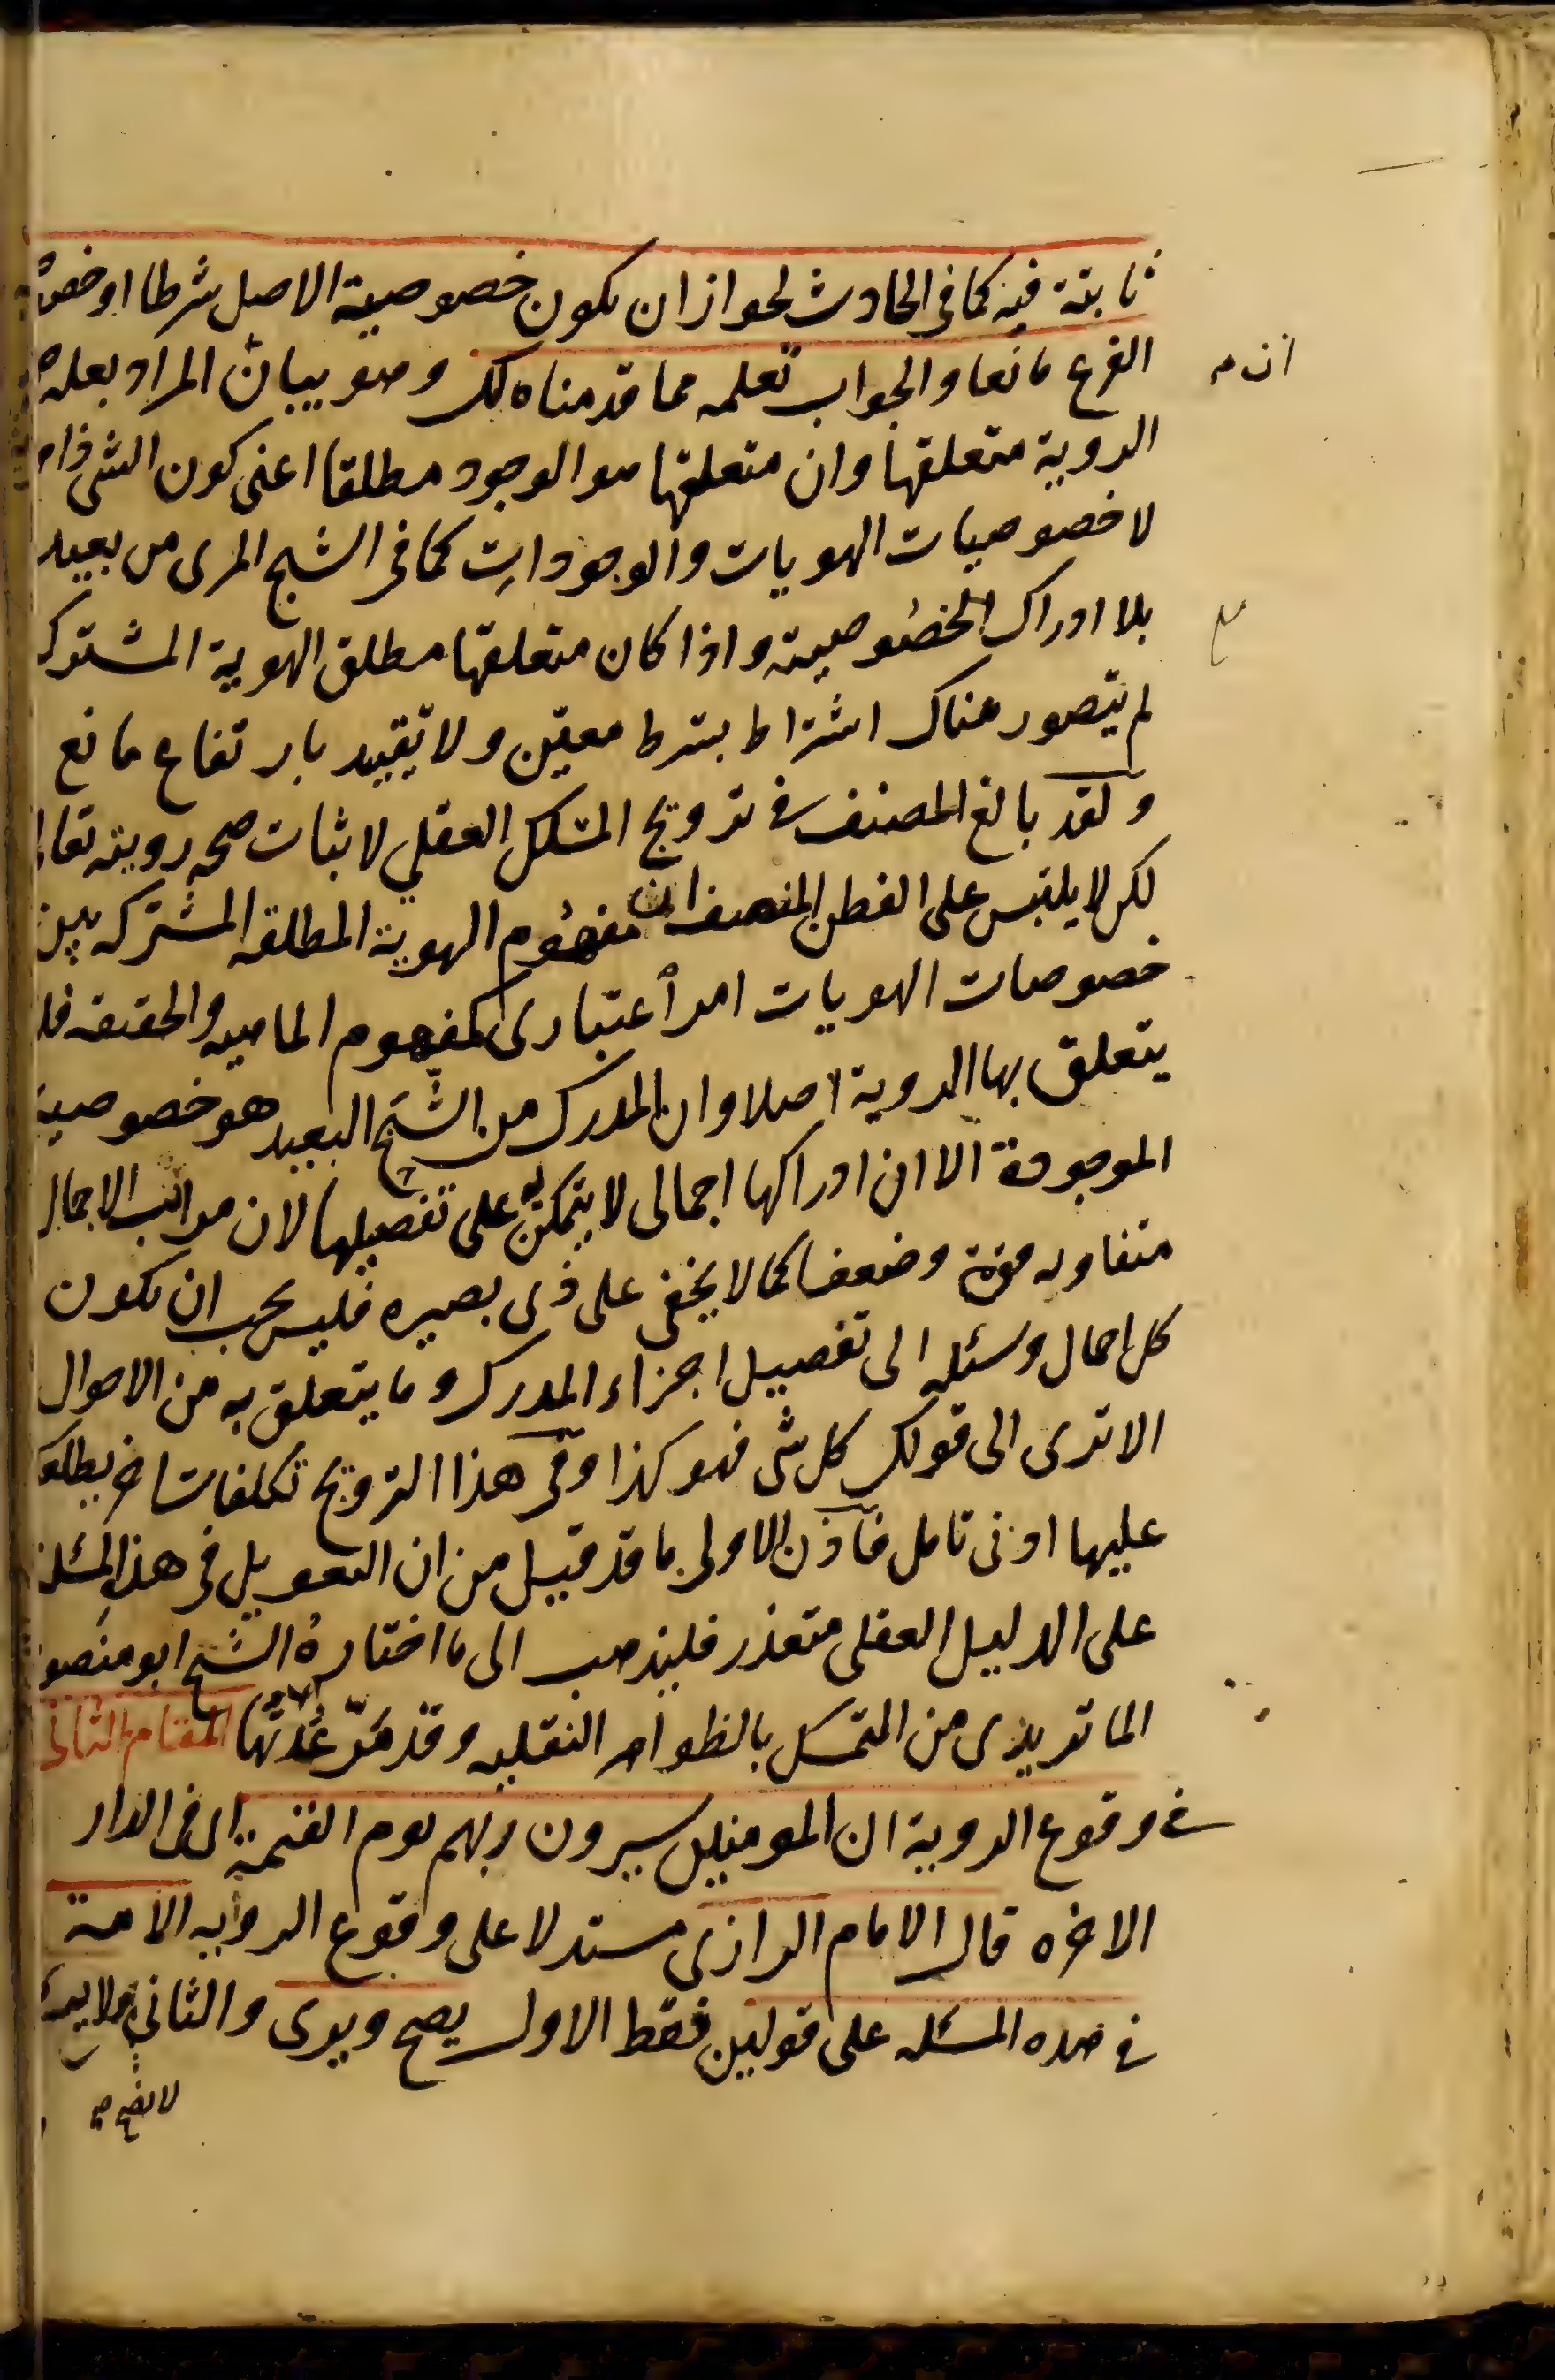 ثابتة فيه كما في الحادث لجواز ان يكون خصوصية الاصل شرطا او خصوصية
الفرع مانعا والجواب تعلمه مما قدمناه لك وهو بيان ان المراد بعلة
ان
الروية متعلقها وان متعلقها هو الوجود مطلقا اعنى كون الشى ذا
لا خصوصيات الهويات والوجودات كما في الشبح المرى من بعيد
بلا ادراك لخصوصيته واذا كان متعلقها مطلق الهوية المشتركة
لم يتصور هناك اشتراط بشرط معين ولا تقييد بارتفاع مانع
ولقد بالغ المصنف في ترويج المسلك العقلي لاثبات صحة رويته تعالى
لكن لا يلتبس على الفطن المنصف ان مفهوم الهوية المطلقه المشتركه بين
خصوصيات الهويات امر اعتبارى كمفهوم الماهيه والحقيقه فلا
يتعلق بها الروية اصلا وان المدرك من الشبح البعيد هو خصوصيته
الموجودة الا ان ادراكها اجمالى لا يتمكن به على تفصيلها لان مراتب الاجمال
متفاوته قوة وضعفا كما لا يخفى على ذى بصيره فليس يجب ان يكون
كل اجمال وسيلة الى تفصيل اجزاء المدرك وما يتعلق به من الاحوال
الا ترى الى قولك كل شى فهو كذا وفي هذا الترويج تكلفات اخر يطلعك
عليها ادنى تامل فاذن الاولى ما قد قيل من ان التعويل في هذه المسئلة
على الدليل العقلى متعذر فليذهب الى ما اختاره الشيخ ابو منصور
الماتريدى من التمسك بالظواهر النقليه وقد مر عدتها المقام الثانى
في وقوع الروية ان المومنين سيرون ربهم يوم القيمة اى في الدار
الاخره قال الامام الرازى مستدلا على وقوع الرويه الامة
في هذه المسئله على قولين فقط الاول يصح ويرى والثانى لا يرى
لا يصح